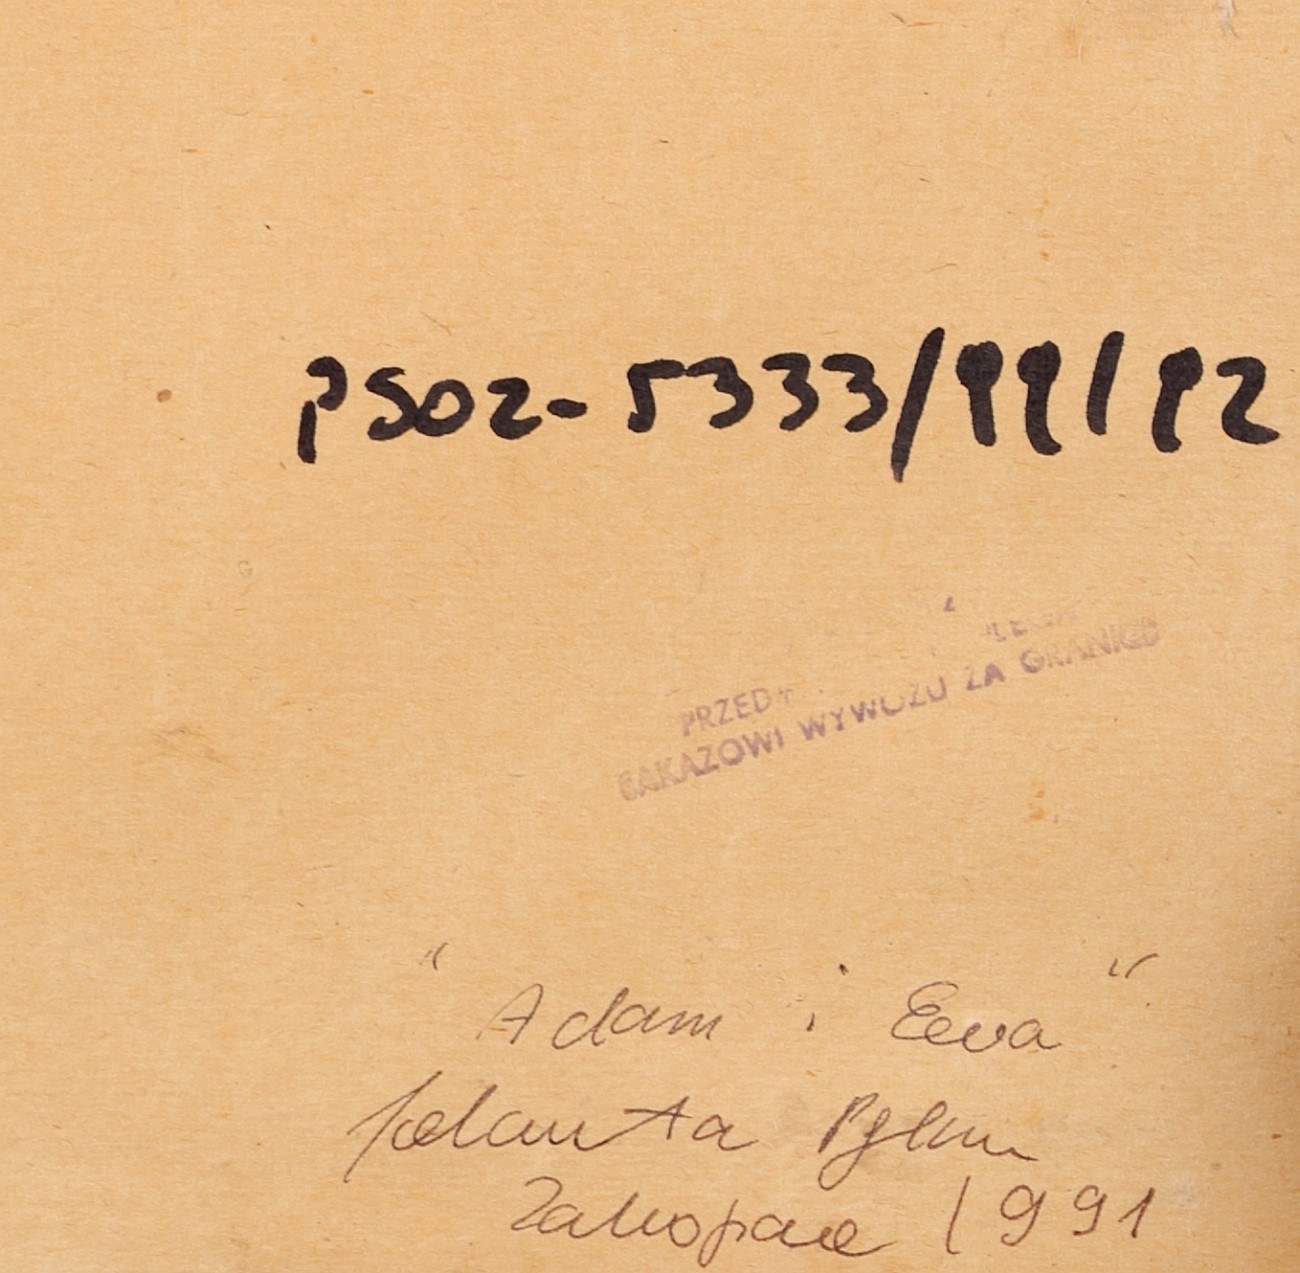 PSOZ-5333/99/92
ZAKAZOWI WYWOZU ZA GRANICĘ
"Adam i Ewa"
Jolanta
Zakopane 1991